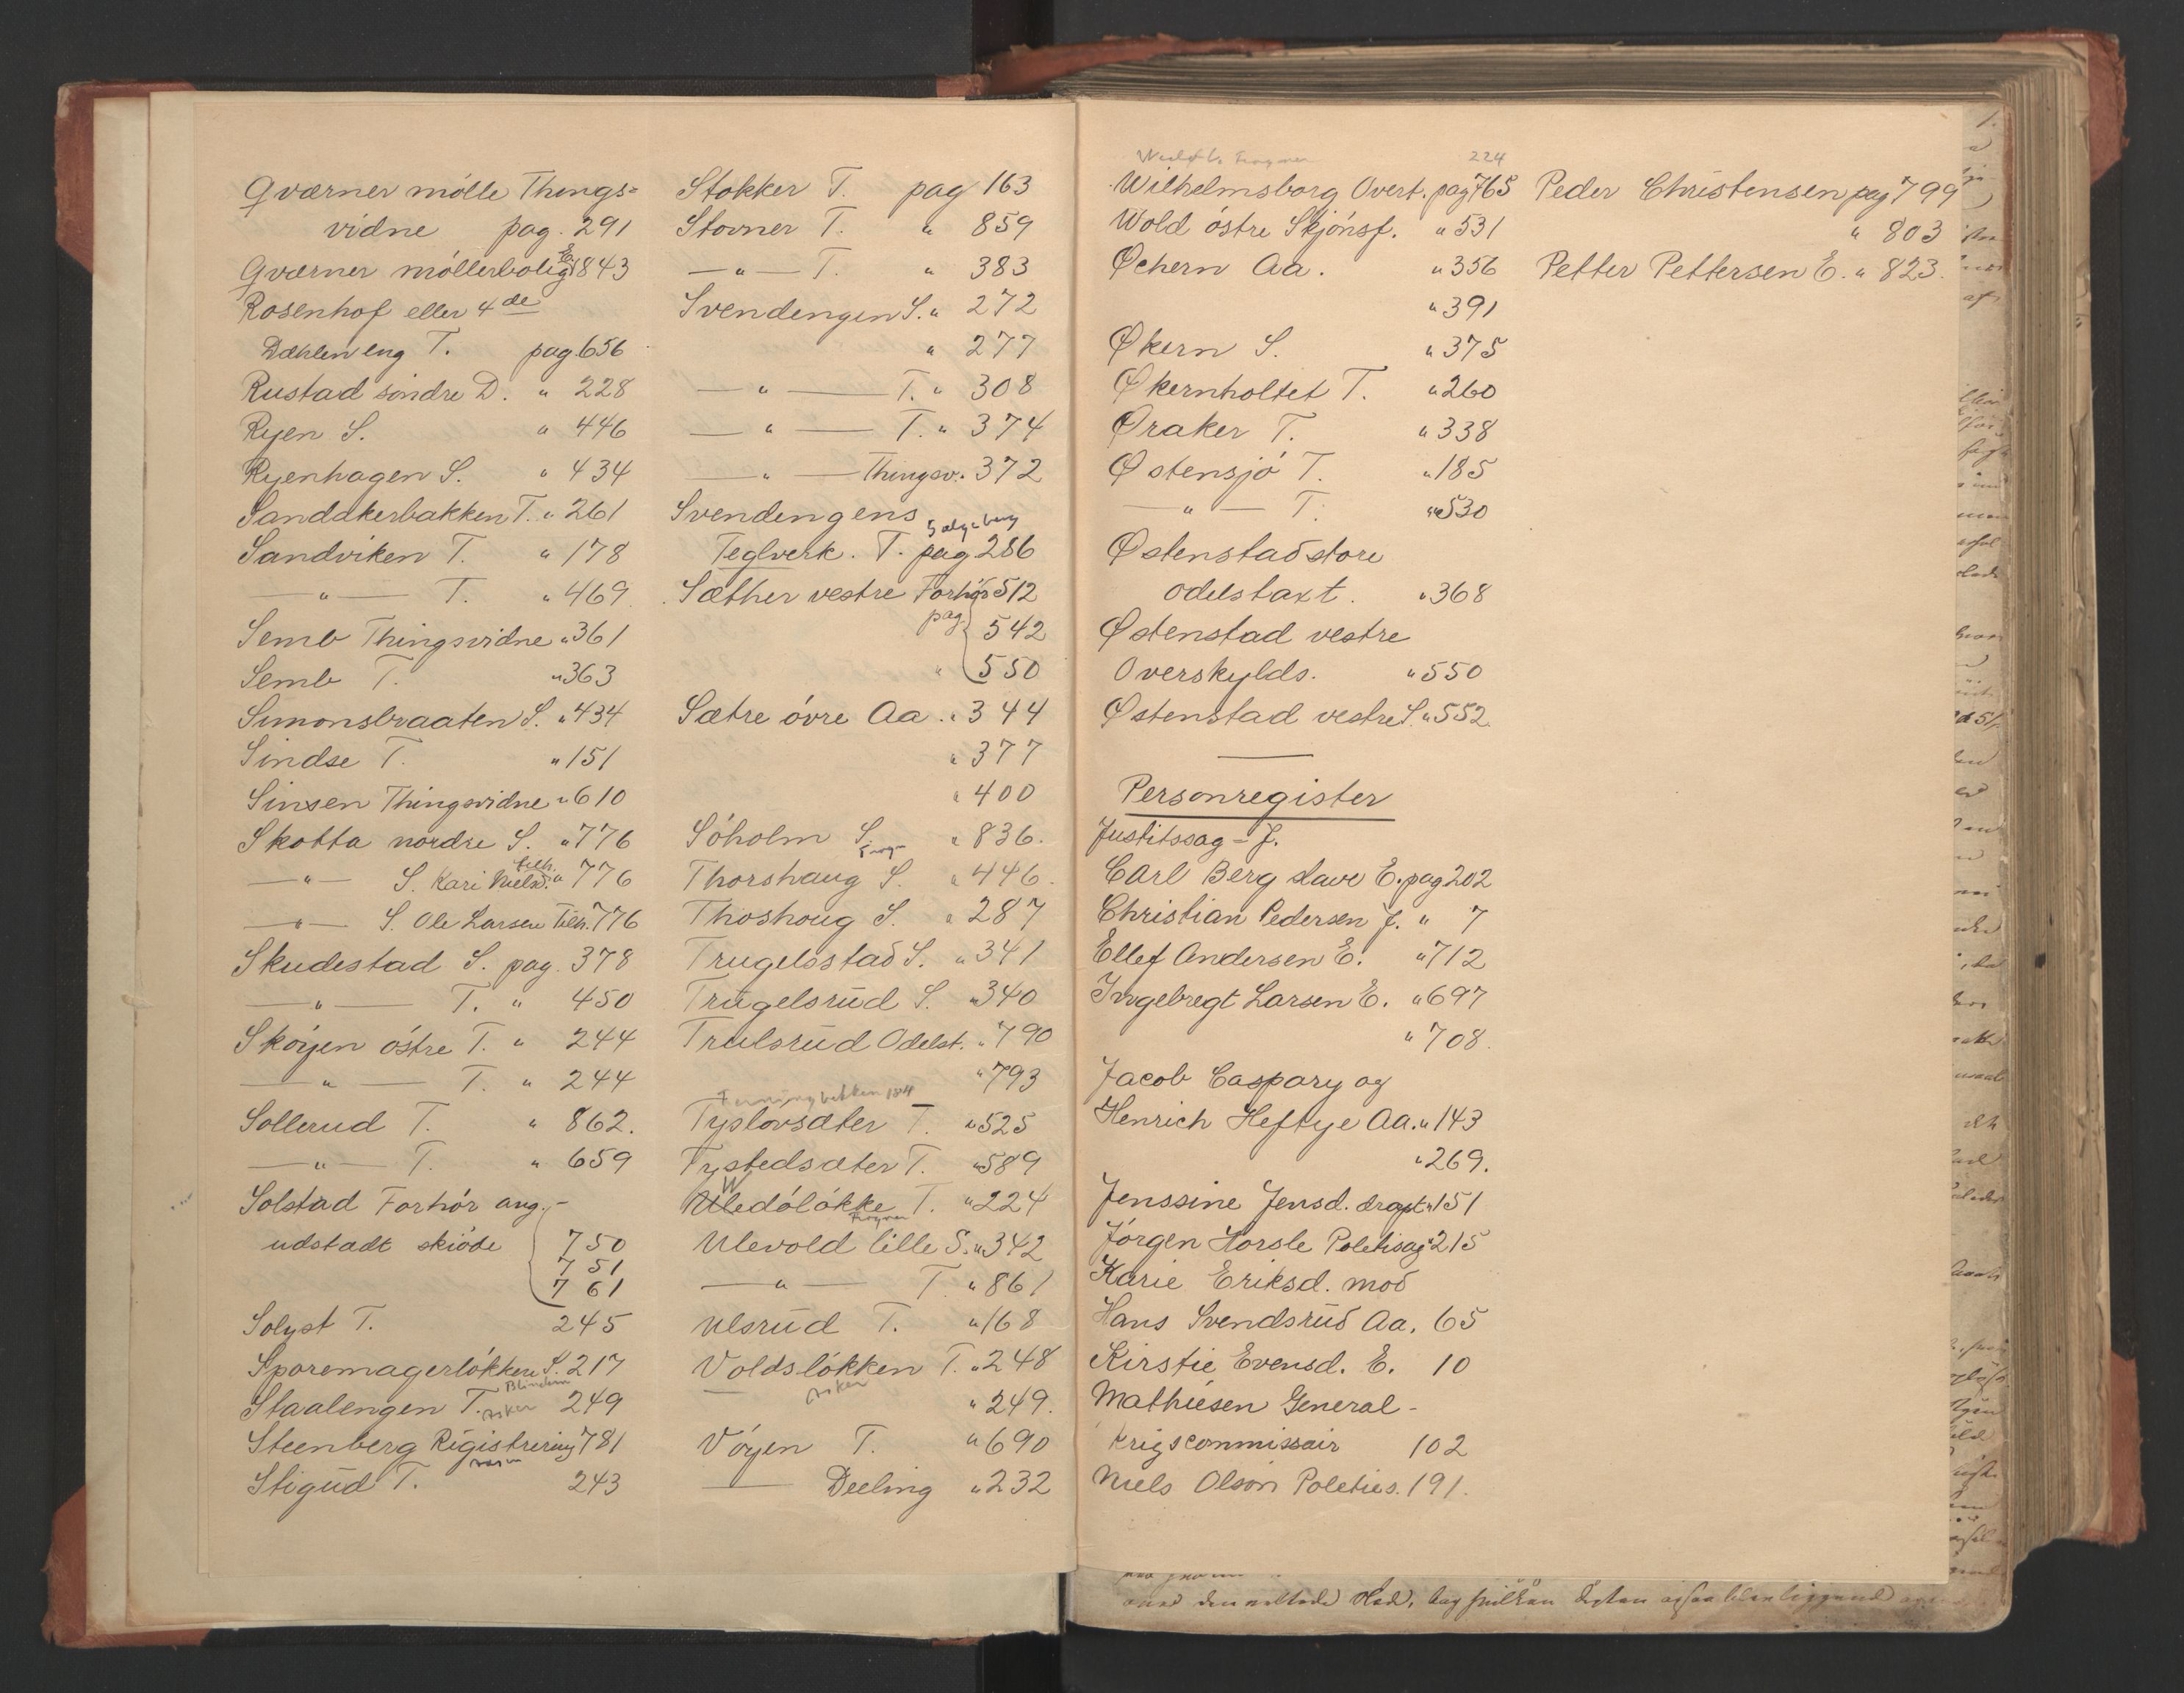 Qværner mølle Things=
vidne pag. 291
Qværner møllerbolig E 843
Rosenhof eller 4de
Dæhlen eng T. pag 656
Rustad söndre D. " 228
Ryen S. " 446
Ryenhagen S. " 434
Sandåkerbakken T. " 261
Sandviken T. " 178
— " — T. " 469
Semb Thingsvidne " 361
Semb T. " 363
Simonsbraaten S. " 434
Sindse T. " 151
Sinsen Thingsvidne " 610
Skotta nordre S. " 776
— " — S. Kari Nielsd. tilh. " 776
— " — S. Ole Larsen Tilh. 776
Skudestad S. pag. 378
— " — T. " 450
Skøyen östre T. " 244
— " — T. " 244
Sollerud T. " 862.
— " — T. " 659
Solstad Forhör ang.-
udstadt skiöde 750
751
761
Solyst T. 245
Sporemagerlökken S. 217
Blindern
Staalengen T. Asker 249
Steenberg Rigistrering 781
Stigud T. 243
Stokker T. pag 163
Stovner T. " 859
— " — T. " 383
Svendengen S. " 272
" 277
— " — T. " 308
— " — T. " 374
— " — Thingsv. 372
Svendengens
Galgeberg
Teglverk. T. pag 286
Sæther vestre Forhör 512
pag. 542
" 550
Sætre óvre Aa. " 344
" 377
" 400
Sóholm S. " 836.
Thorshaug S. " 446.
Thoshoug S. " 287
Trugelsstad S. " 341
Trügelsrüd S. " 340
Trulsrüd Odelst. " 790
" 793
Tyslovsæter T. " 525
Tystedsæter T. " 589
W
Uledólókke T. " 224
Frogner
Ulevold lille S. " 342
— " — T. " 861
Ulsrüd T. " 168
Voldslókken T. " 248
— Asker " 249.
Vóyen T. " 690
— Deeling " 232
224
Wilhelmsborg Overt. pag 765
Wold óstre Skjónsf. " 531
Øchern Aa. " 356
" 391
Økern S. " 375
Økernholtet T. " 260
Øraker T. " 338
Østensjó T. " 185
— " — T. " 530
Østenstad store
odelstaxt. " 368
Østenstad vestre
Overskylds. " 550
Østenstad vestre S. " 552.
Personregister
Justitssag - J.
Carl Berg slave E. pag 202
Christian Pedersen J. " 7
Ellef Andersen E. " 712
Ingebregt Larsen E. " 697
" 708.
Jacob Caspary og
Henrich Heftye Aa. " 143
" 269.
Jenssine Jensd. drapt " 151
Jórgen Horsle Politisag " 215
Karie Eriksd. mod
Hans Svendsrüd Aa. 65
Kirstie Evensd. E. 10
Mathiesen General-
krigscommissair 102
Niels Olson Poleties. 191.
Peder Christensen pag 799
" 803
Petter Pettersen E. " 823.